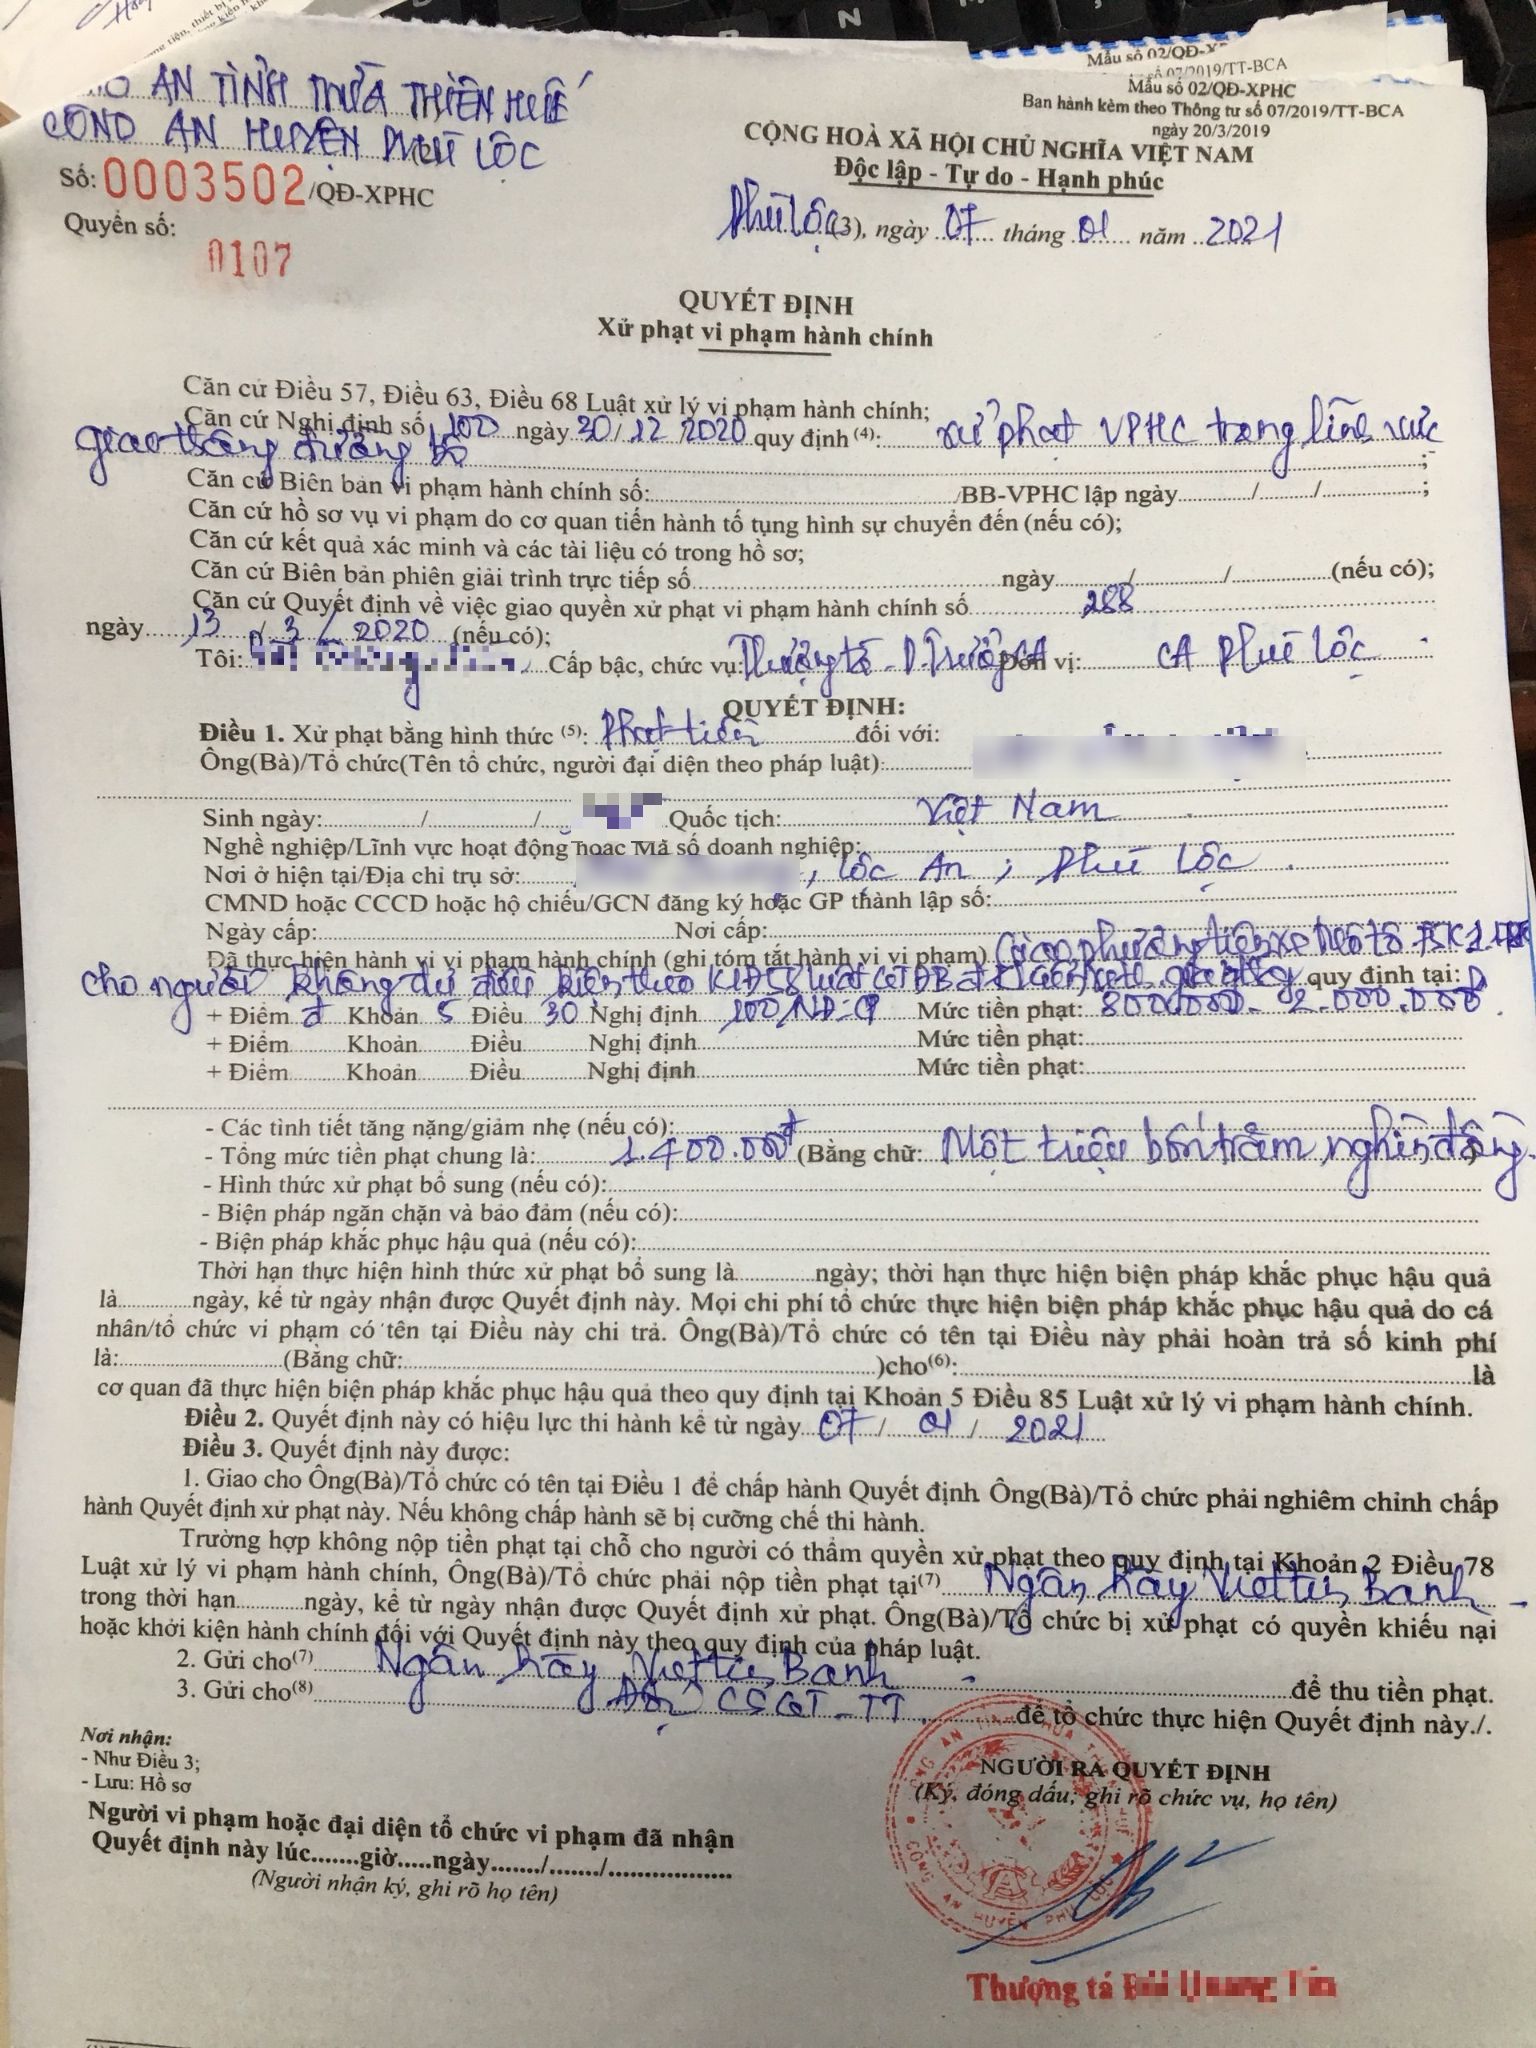 AN TỈNH THỪA THIÊN HUẾ
CÔNG AN HUYỆN PHÚ LỘC
Số: 0003502/QĐ-XPHC
Quyển số:
0107
Mẫu số 02/QĐ-XP
07/2019/TT-BCA
Mẫu số 02/QĐ-XPHC
Ban hành kèm theo Thông tư số 07/2019/TT-BCA
ngày 20/3/2019
CỘNG HOÀ XÃ HỘI CHỦ NGHĨA VIỆT NAM
Độc lập - Tự do - Hạnh phúc
Phú Lộc(3), ngày 07 tháng 01 năm 2021
QUYẾT ĐỊNH
Xử phạt vi phạm hành chính
Căn cứ Điều 57, Điều 63, Điều 68 Luật xử lý vi phạm hành chính;
Căn cứ Nghị định số 100 ngày 30/12/2020 quy định (4): xử phạt VPHC trong lĩnh vực
giao thông đường bộ ;
Căn cứ Biên bản vi phạm hành chính số:............/BB-VPHC lập ngày....../....../......;
Căn cứ hồ sơ vụ vi phạm do cơ quan tiến hành tố tụng hình sự chuyển đến (nếu có);
Căn cứ kết quả xác minh và các tài liệu có trong hồ sơ;
Căn cứ Biên bản phiên giải trình trực tiếp số............ngày....../....../......(nếu có);
Căn cứ Quyết định về việc giao quyền xử phạt vi phạm hành chính số 288
ngày 13 / 3 / 2020 (nếu có);
Tôi: Cấp bậc, chức vụ: Thượng tá - P.Trưởng CA Đơn vị: CA Phú Lộc
QUYẾT ĐỊNH:
Điều 1. Xử phạt bằng hình thức (5): Phạt tiền đối với:
Ông(Bà)/Tổ chức(Tên tổ chức, người đại diện theo pháp luật):
Sinh ngày:....../....../ Quốc tịch: Việt Nam
Nghề nghiệp/Lĩnh vực hoạt động hoặc Mã số doanh nghiệp:
Nơi ở hiện tại/Địa chỉ trụ sở: , Lộc An ; Phú Lộc .
CMND hoặc CCCD hoặc hộ chiếu/GCN đăng ký hoặc GP thành lập số:
Ngày cấp:............Nơi cấp:
Đã thực hiện hành vi vi phạm (ghi tóm tắt hành vi vi phạm) Giao phương tiện xe mô tô
cho người không đủ điều kiện theo K1Đ58 luật GTĐB quy định tại:
+ Điểm đ Khoản 5 Điều 30 Nghị định 100/NĐ-CP Mức tiền phạt: 800.000 - 2.000.000đ
+ Điểm Khoản Điều Nghị định Mức tiền phạt:
+ Điểm Khoản Điều Nghị định Mức tiền phạt:
- Các tình tiết tăng nặng/giảm nhẹ (nếu có):
- Tổng mức tiền phạt chung là: 1.400.000đ (Bằng chữ: Một triệu bốn trăm nghìn đồng.
- Hình thức xử phạt bổ sung (nếu có):
- Biện pháp ngăn chặn và bảo đảm (nếu có):
- Biện pháp khắc phục hậu quả (nếu có):
Thời hạn thực hiện hình thức xử phạt bổ sung là............ngày; thời hạn thực hiện biện pháp khắc phục hậu quả
là............ngày, kể từ ngày nhận được Quyết định này. Mọi chi phí tổ chức thực hiện biện pháp khắc phục hậu quả do cá
nhân/tổ chức vi phạm có tên tại Điều này chi trả. Ông(Bà)/Tổ chức có tên tại Điều này phải hoàn trả số kinh phí
là:............(Bằng chữ:............)cho(6):............là
cơ quan đã thực hiện biện pháp khắc phục hậu quả theo quy định tại Khoản 5 Điều 85 Luật xử lý vi phạm hành chính.
Điều 2. Quyết định này có hiệu lực thi hành kể từ ngày 07 / 01 / 2021
Điều 3. Quyết định này được:
1. Giao cho Ông(Bà)/Tổ chức có tên tại Điều 1 để chấp hành Quyết định Ông(Bà)/Tổ chức phải nghiêm chỉnh chấp
hành Quyết định xử phạt này. Nếu không chấp hành sẽ bị cưỡng chế thi hành.
Trường hợp không nộp tiền phạt tại chỗ cho người có thẩm quyền xử phạt theo quy định tại Khoản 2 Điều 78
Luật xử lý vi phạm hành chính, Ông(Bà)/Tổ chức phải nộp tiền phạt tại(7) Ngân hàng Viettin Banh
trong thời hạn............ngày, kể từ ngày nhận được Quyết định xử phạt. Ông(Bà)/Tổ chức bị xử phạt có quyền khiếu nại
hoặc khởi kiện hành chính đối với Quyết định này theo quy định của pháp luật.
2. Gửi cho(7) Ngân hàng Viettin Banh để thu tiền phạt.
3. Gửi cho(8) Đội CSGT-TT để tổ chức thực hiện Quyết định này./.
Nơi nhận:
- Như Điều 3;
- Lưu: Hồ sơ
Người vi phạm hoặc đại diện tổ chức vi phạm đã nhận
Quyết định này lúc.......giờ.....ngày......./......./..................
(Người nhận ký, ghi rõ họ tên)
NGƯỜI RA QUYẾT ĐỊNH
(Ký, đóng dấu; ghi rõ chức vụ, họ tên)
CÔNG AN HUYỆN PHÚ LỘC
Thượng tá